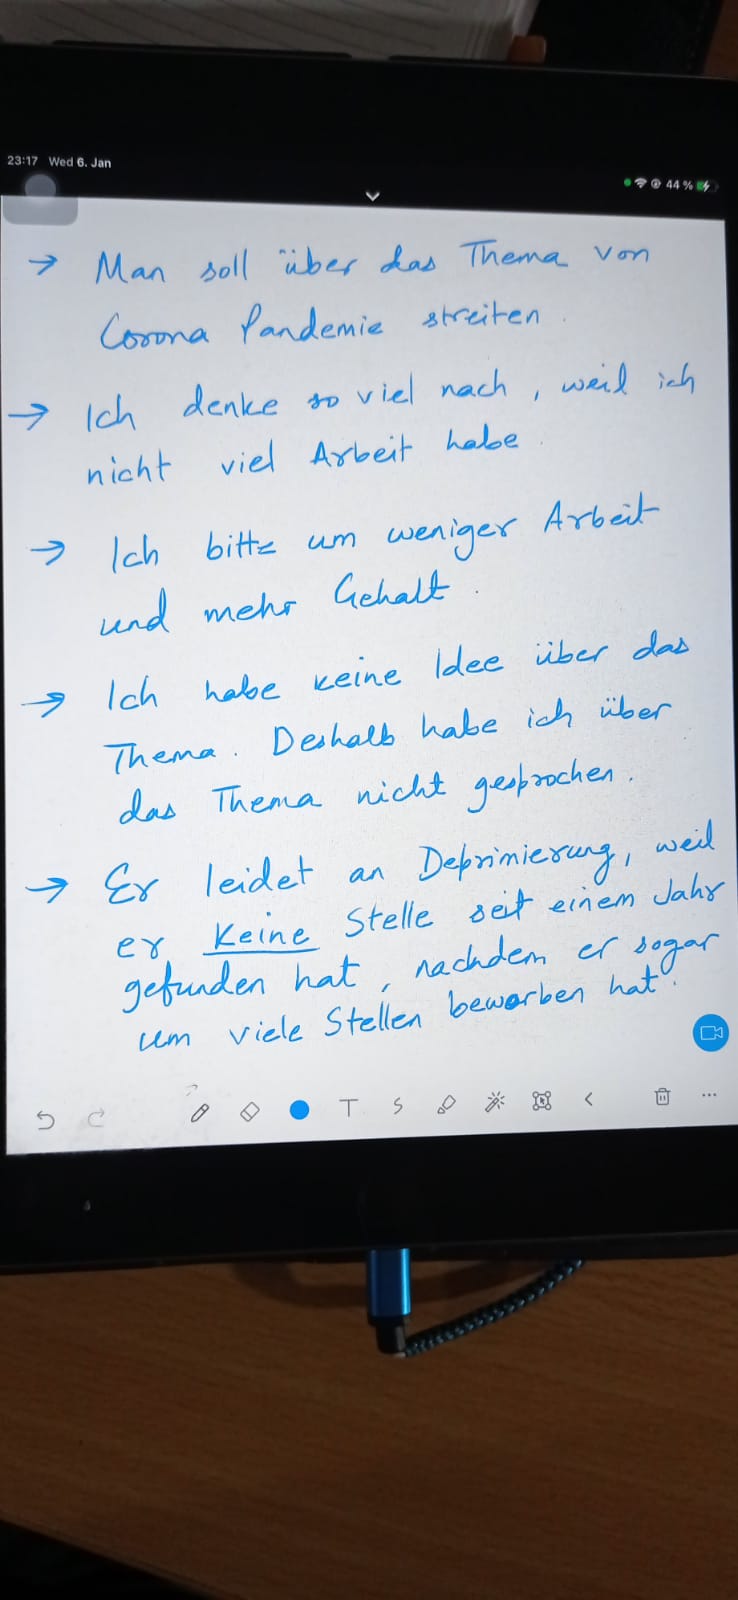 23:17 Wed 6. Jan
44 %
→ Man soll über das Thema von
Corona Pandemie streiten.
→ Ich denke so viel nach, weil ich
nicht viel Arbeit habe.
→ Ich bitte um weniger Arbeit
und mehr Gehalt.
→ Ich habe keine Idee über das
Thema. Deshalb habe ich über
das Thema nicht gesprochen.
→ Er leidet an Deprimierung, weil
er keine Stelle seit einem Jahr
gefunden hat, nachdem er sogar
um viele Stellen beworben hat.
T